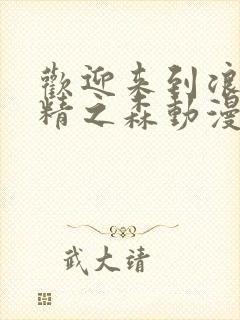 歡迎来到浪
精之森動漫
武大靖